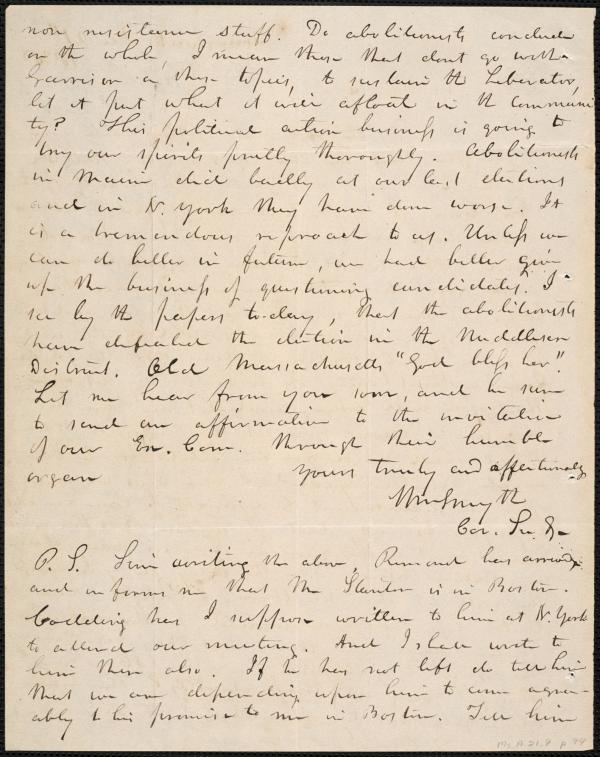 non resistance stuff. Do abolitionists conclude
on the whole, I mean those that dont go with
Garrison on these topics, to sustain the Liberator,
let it put what it will afloat in the communi
ty? This political action business is going to
try our spirits pretty thoroughly. Abolitionists
in Maine did badly at our last elections
and in N. York they have done worse. It
is a tremendous reproach to us. Unless we
can do better in future, we had better give
up the business of questioning candidates. I
see by the papers to-day, that the abolitionists
have defeated the election in the Middlesex
District. Old Massachusetts "God bless her".
Let me hear from you soon, and be sure
to send an affirmation to the invitation
of our Ex. Com. through their humble
organ yours truly and affectionately
Wm Smyth
Cor. Sec. &c
P. S. Since writing the above, Remond has arrived
and informs me that Mr Stanton is in Boston.
Codding has I suppose written to him at N. York
to attend our meeting. And I shall write to
him there also. If he has not left do tell him
that we are depending upon him to come agree-
ably to his promise to me in Boston. Tell him
Ms. A.21.8 p 74